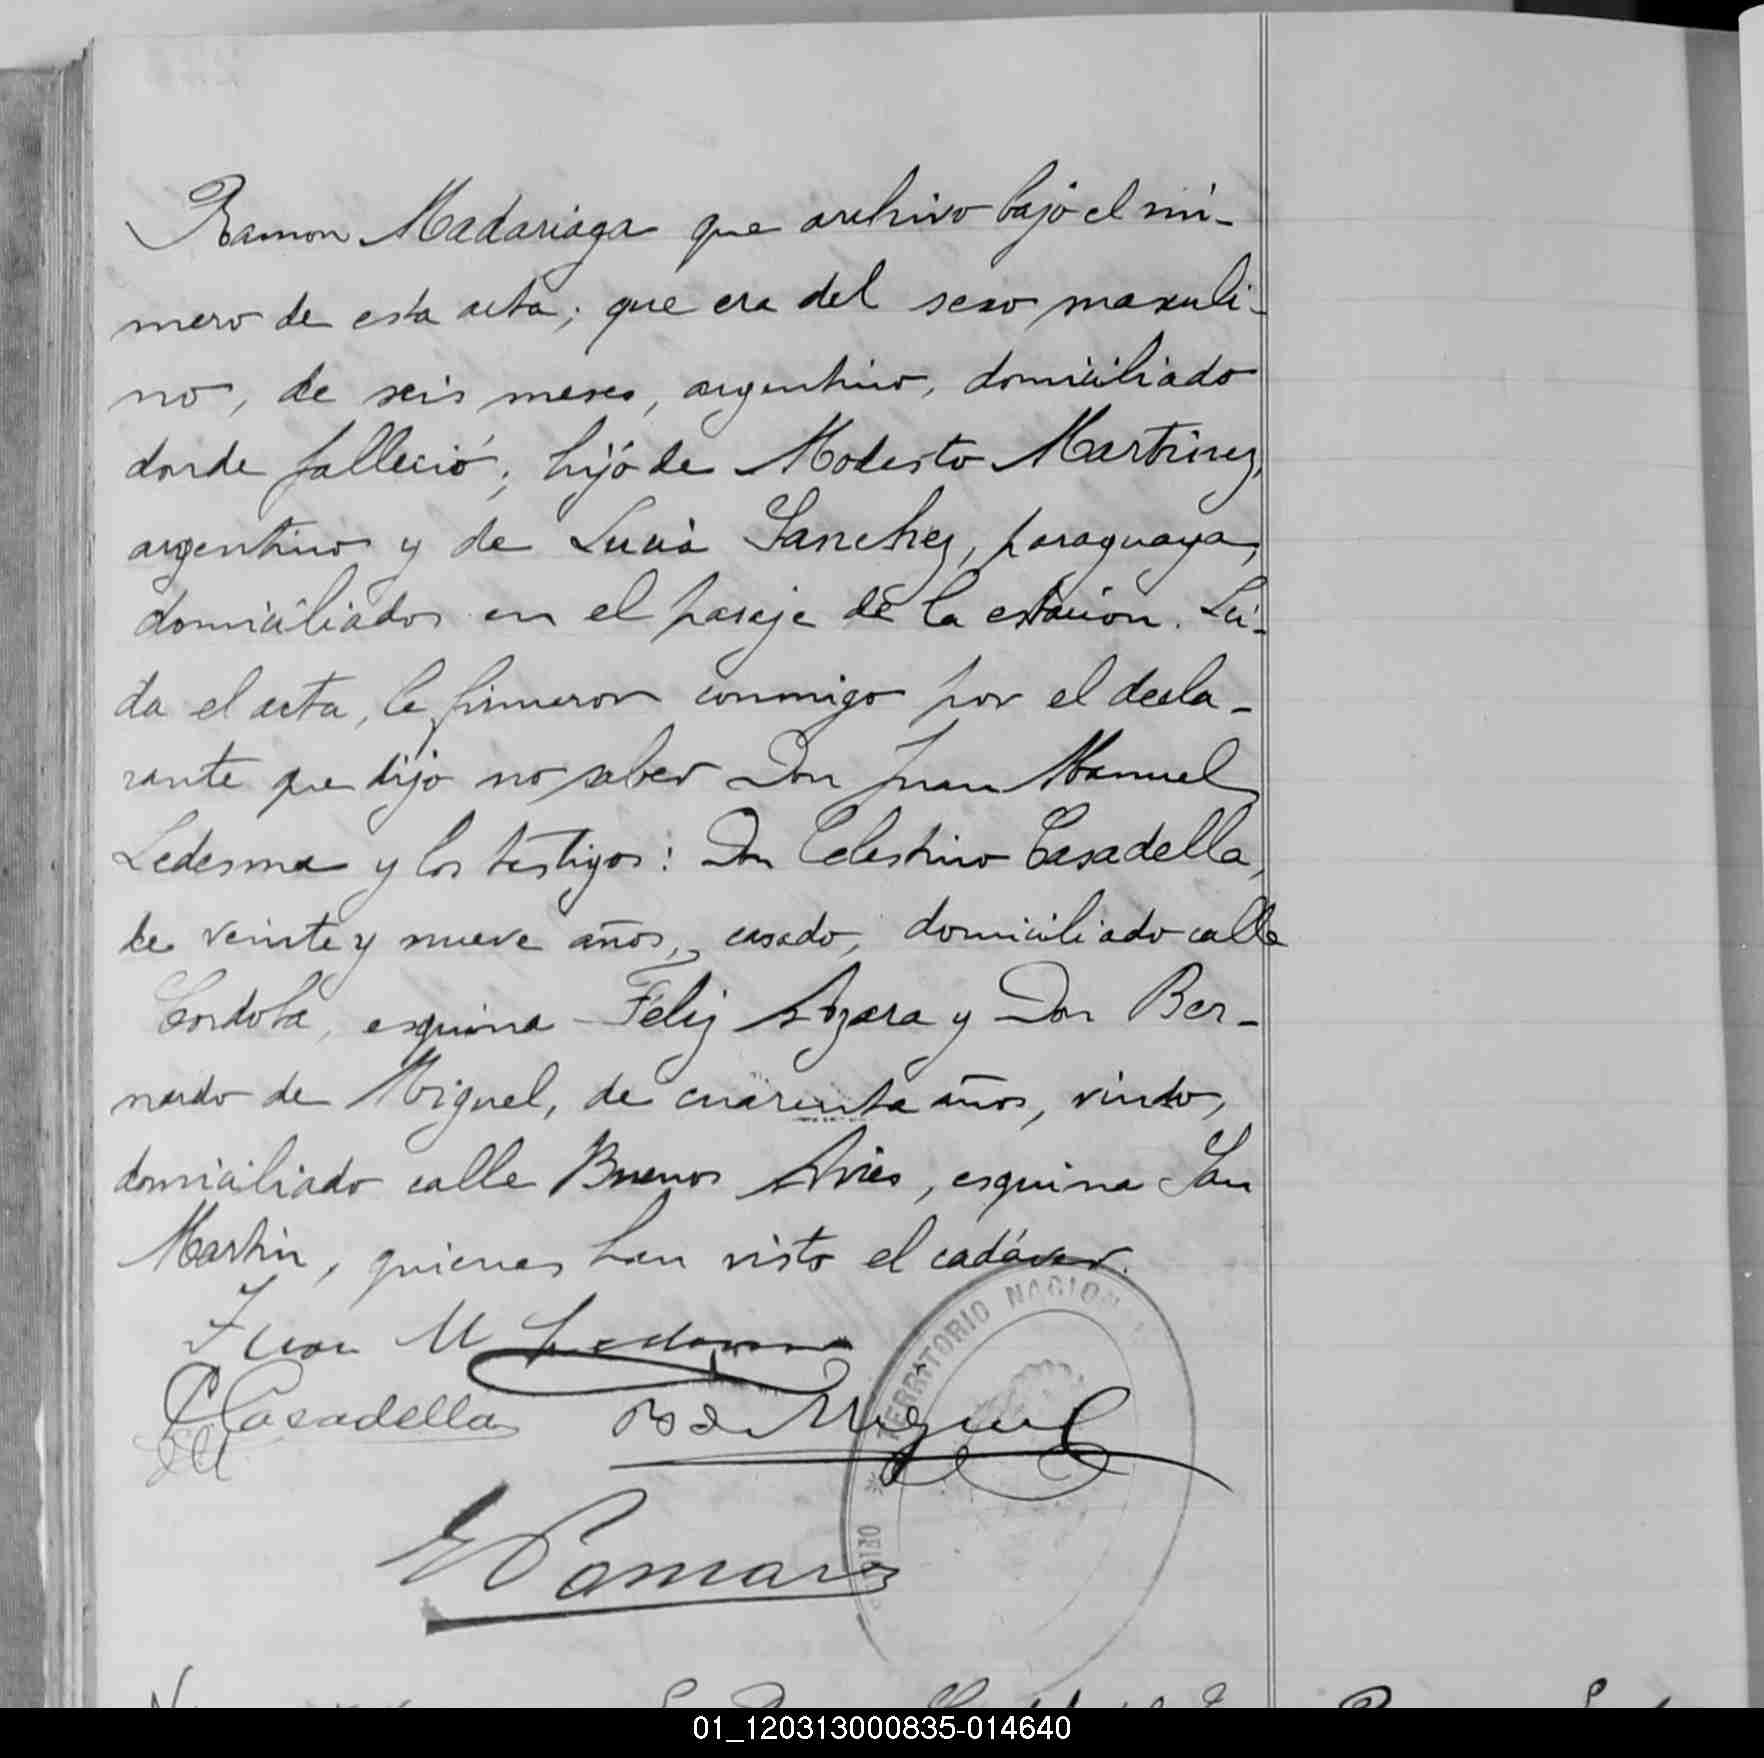 Ramon Madariaga que archivo bajo el nú-
mero de esta acta; que era del sexo masculi-
no, de seis meses, argentino, domiciliado
donde falleció; hijo de Modesto Martinez,
argentino y de Lucia Sanchez, paraguaya,
domiciliados en el paraje de la estacion. Lei-
da el acta, la firmaron conmigo por el decla-
rante que dijo no saber Don Juan Manuel
Ledesma y los testigos: Don Celestino Casadella,
de veinte y nueve años, casado, domiciliado calle
Cordoba, esquina Feliz Azara y Don Ber-
nardo de Miguel, de cuarenta años, viudo,
domiciliado calle Buenos Aires, esquina San
Martin, quienes han visto el cadáver.
Juan M Ledesma
C Casadella B de Miguel
TERRITORIO NACION
01_120313000835-014640